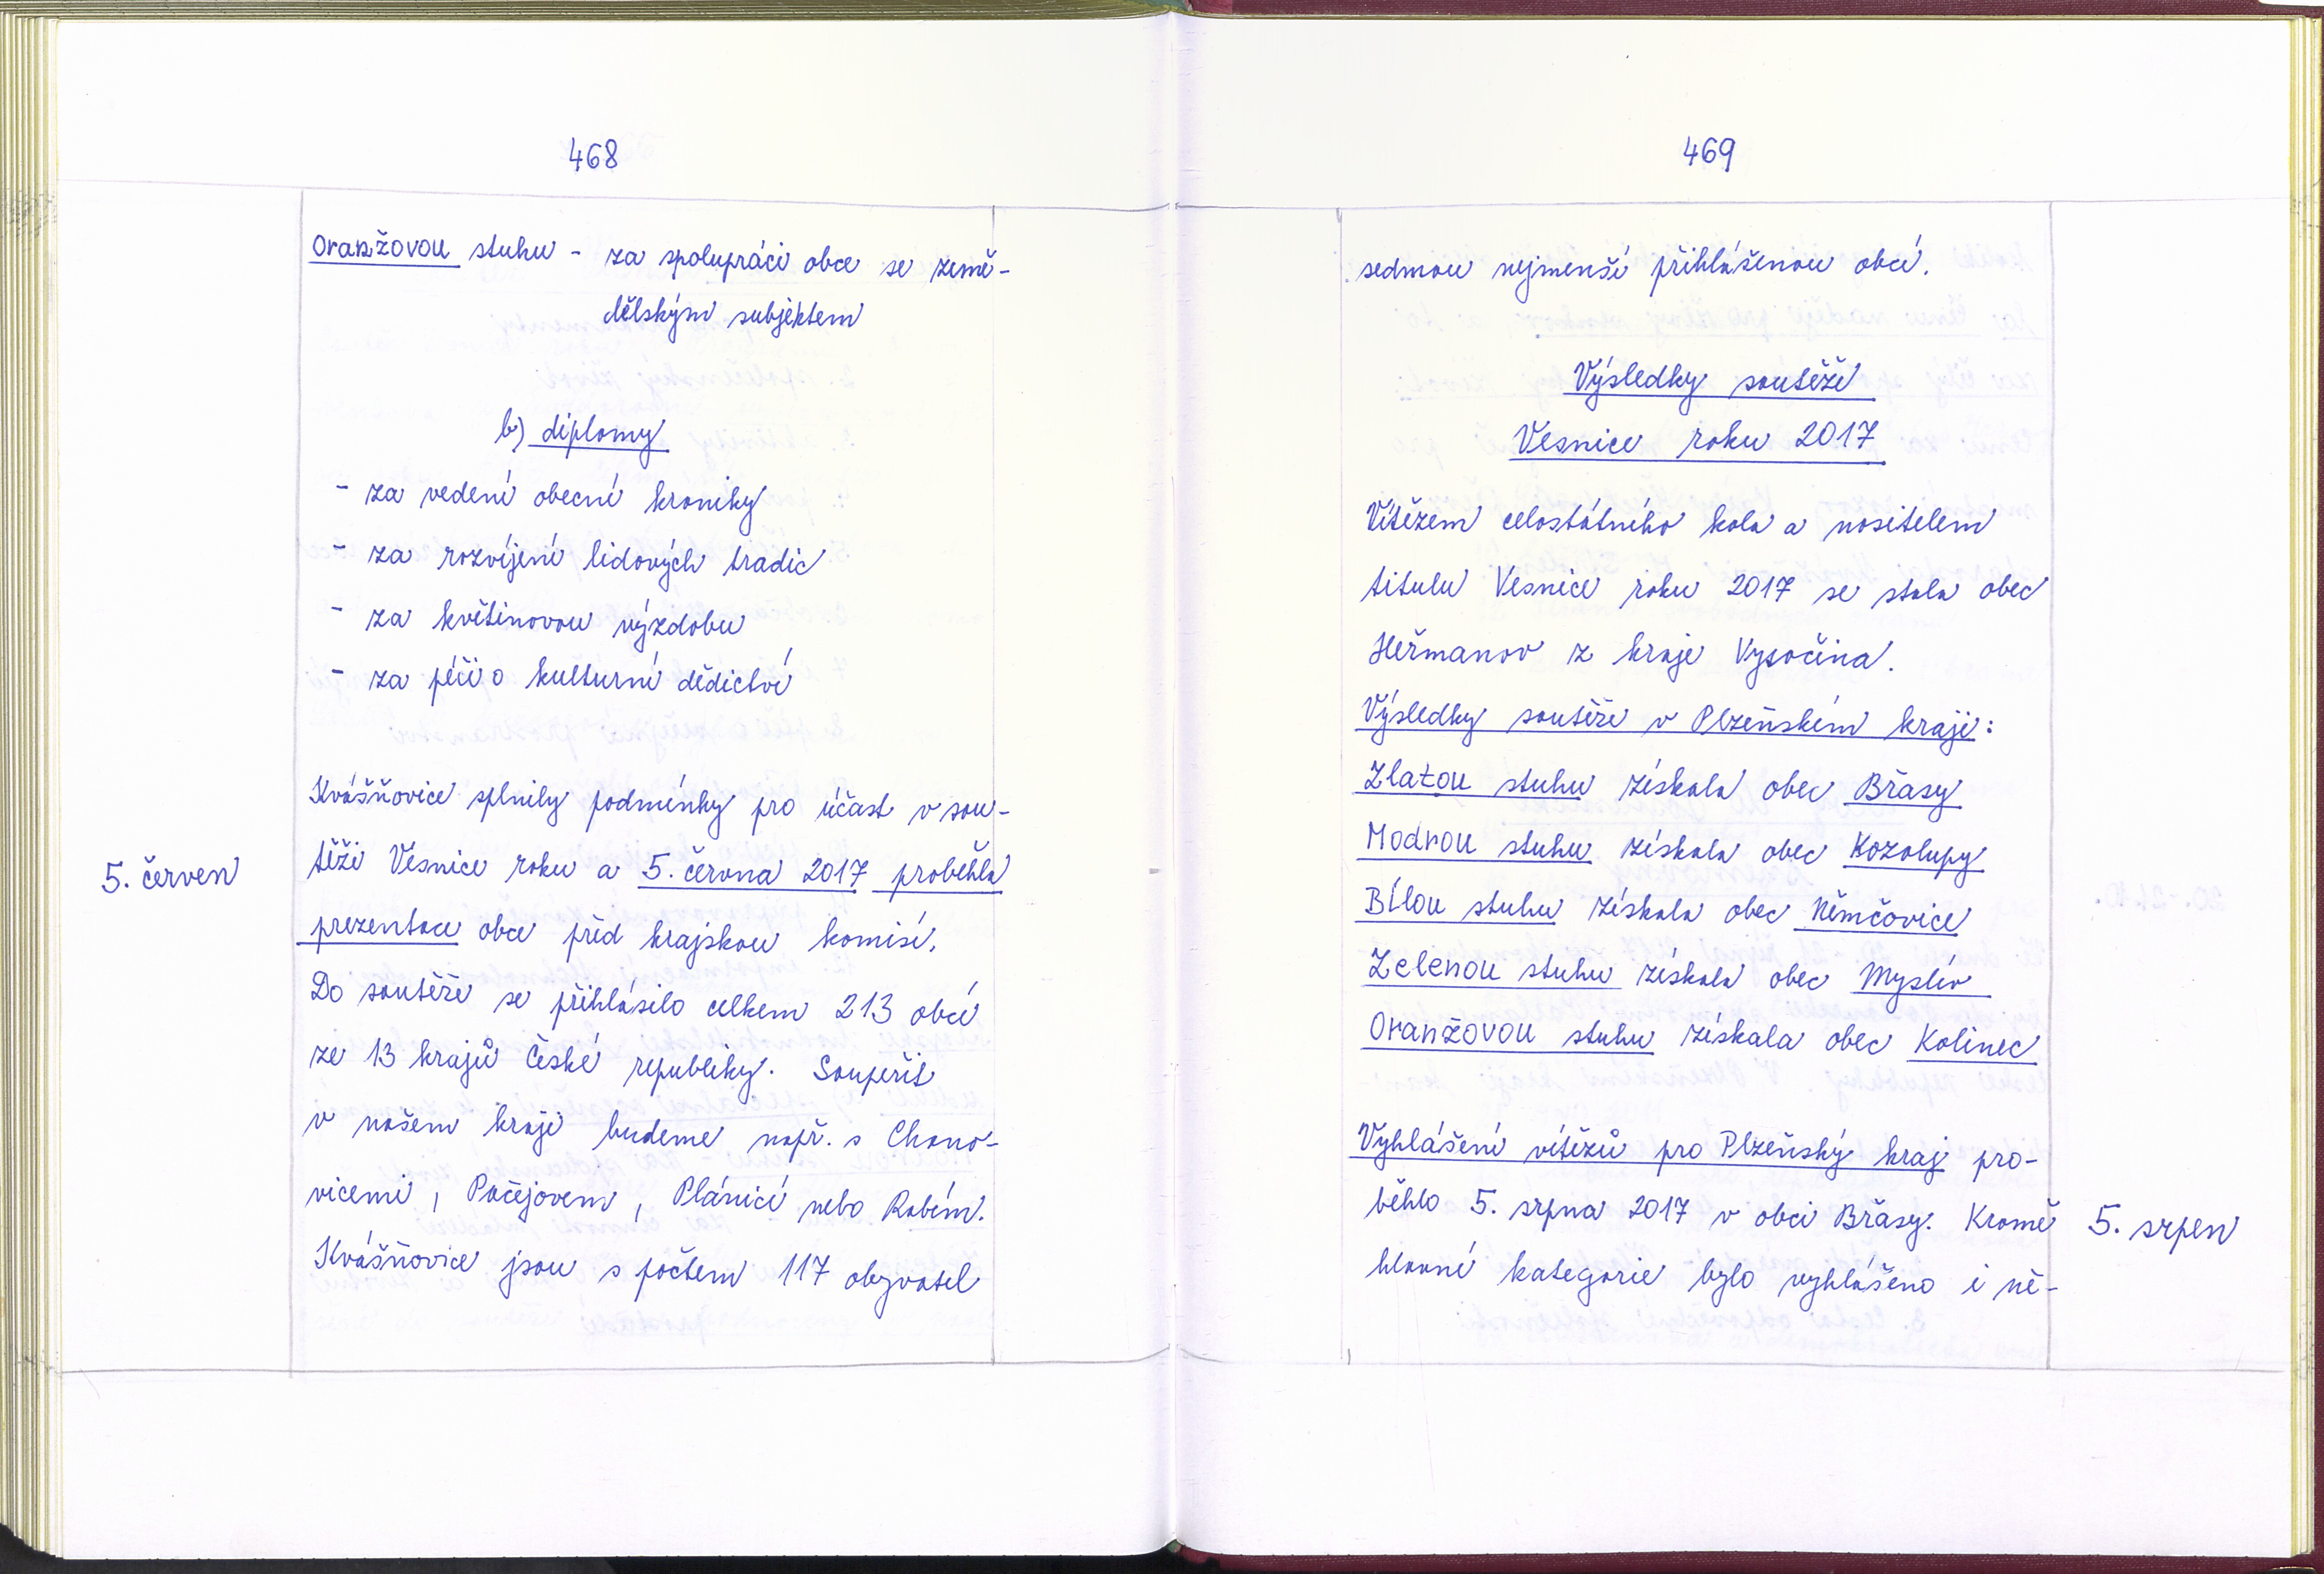 468
Oranžovou stuhu - za spolupráci obce se země-
dělským subjektem
b) diplomy
- za vedení obecní kroniky
- za rozvíjení lidových tradic
- za květinovou výzdobu
- za péči o kulturní dědictví
Kvášňovice splnily podmínky pro účast v sou-
5. červen
těži Vesnice roku a 5. června 2017 proběhla
prezentace obce před krajskou komisí.
Do soutěže se přihlásilo celkem 213 obcí
ze 13 krajů České republiky. Soupeřit
v našem kraji budeme např. s Chano-
vicemi, Pačejovem, Plánicí nebo Rabím.
Kvášňovice jsou s počtem 117 obyvatel
469
sedmou nejmenší přihlášenou obcí.
Výsledky soutěže
Vesnice roku 2017
Vítězem celostátního kola a nositelem
titulu Vesnice roku 2017 se stala obec
Heřmanov z kraje Vysočina.
Výsledky soutěže v Plzeňském kraji:
Zlatou stuhu získala obec Břasy
Modrou stuhu získala obec Kozolupy
Bílou stuhu získala obec Němčovice
Zelenou stuhu získala obec Myslív
Oranžovou stuhu získala obec Kolinec
Vyhlášení vítězů pro Plzeňský kraj pro-
běhlo 5. srpna 2017 v obci Břasy. Kromě
5. srpen
hlavní kategorie bylo vyhlášeno i ně-